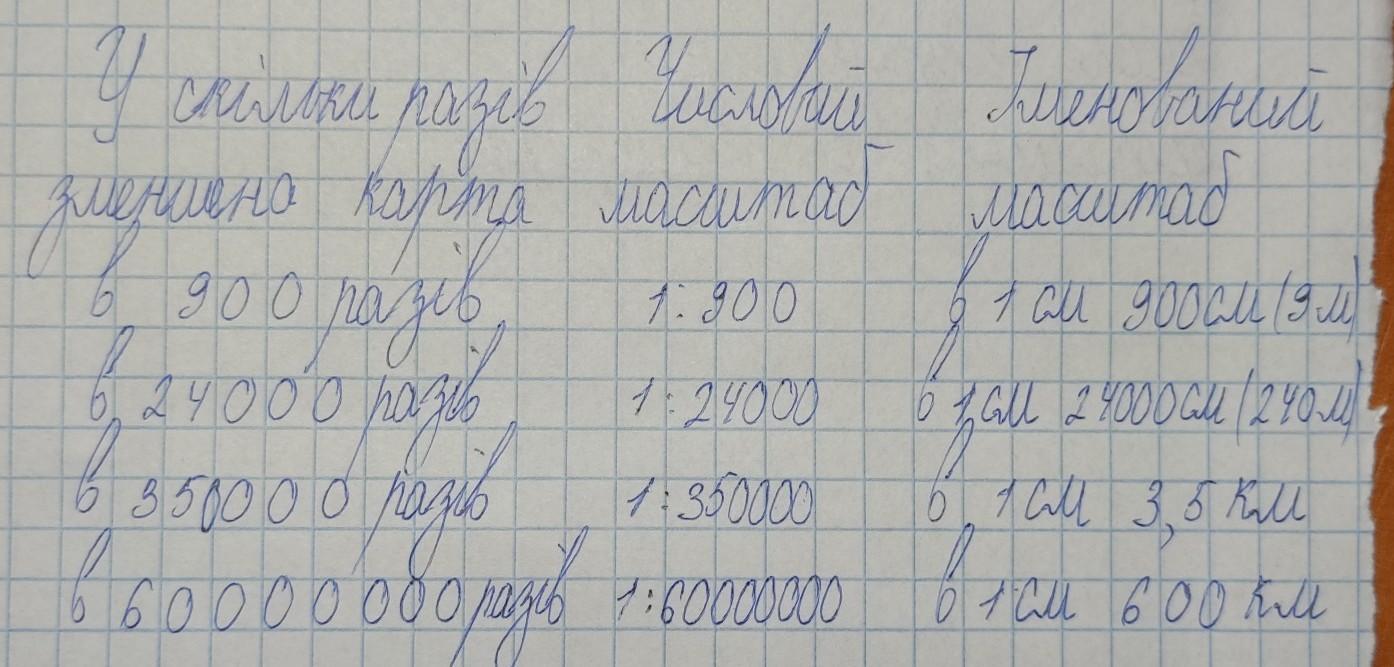 У скільки разів Числовий Іменований
зменшена карта масштаб масштаб
в 900 разів 1:900 в 1 см 900см (9м)
в 24000 разів 1:24000 в 1 см 24000см (240м)
в 350000 разів 1:350000 в 1 см 3,5 км
в 60000000 разів 1:60000000 в 1 см 600 км